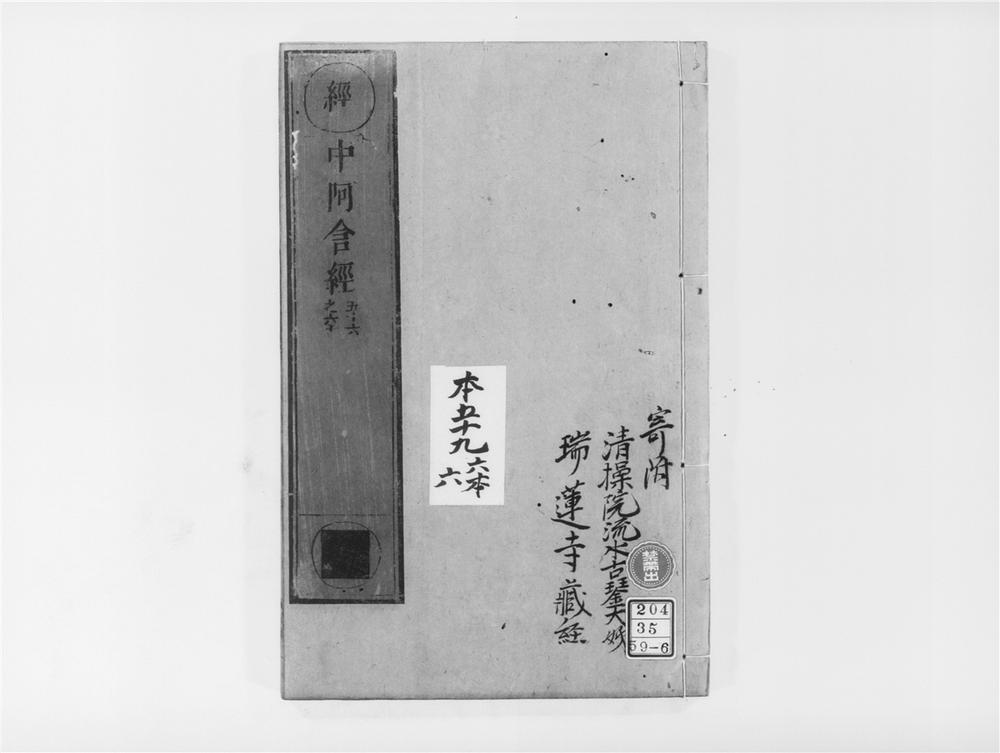 經
中阿含經
五十六
之六十
本五十九 六本
六
寄附
清操院流水古鏧大姉
瑞蓮寺藏経
禁帶出
204
35
59-6